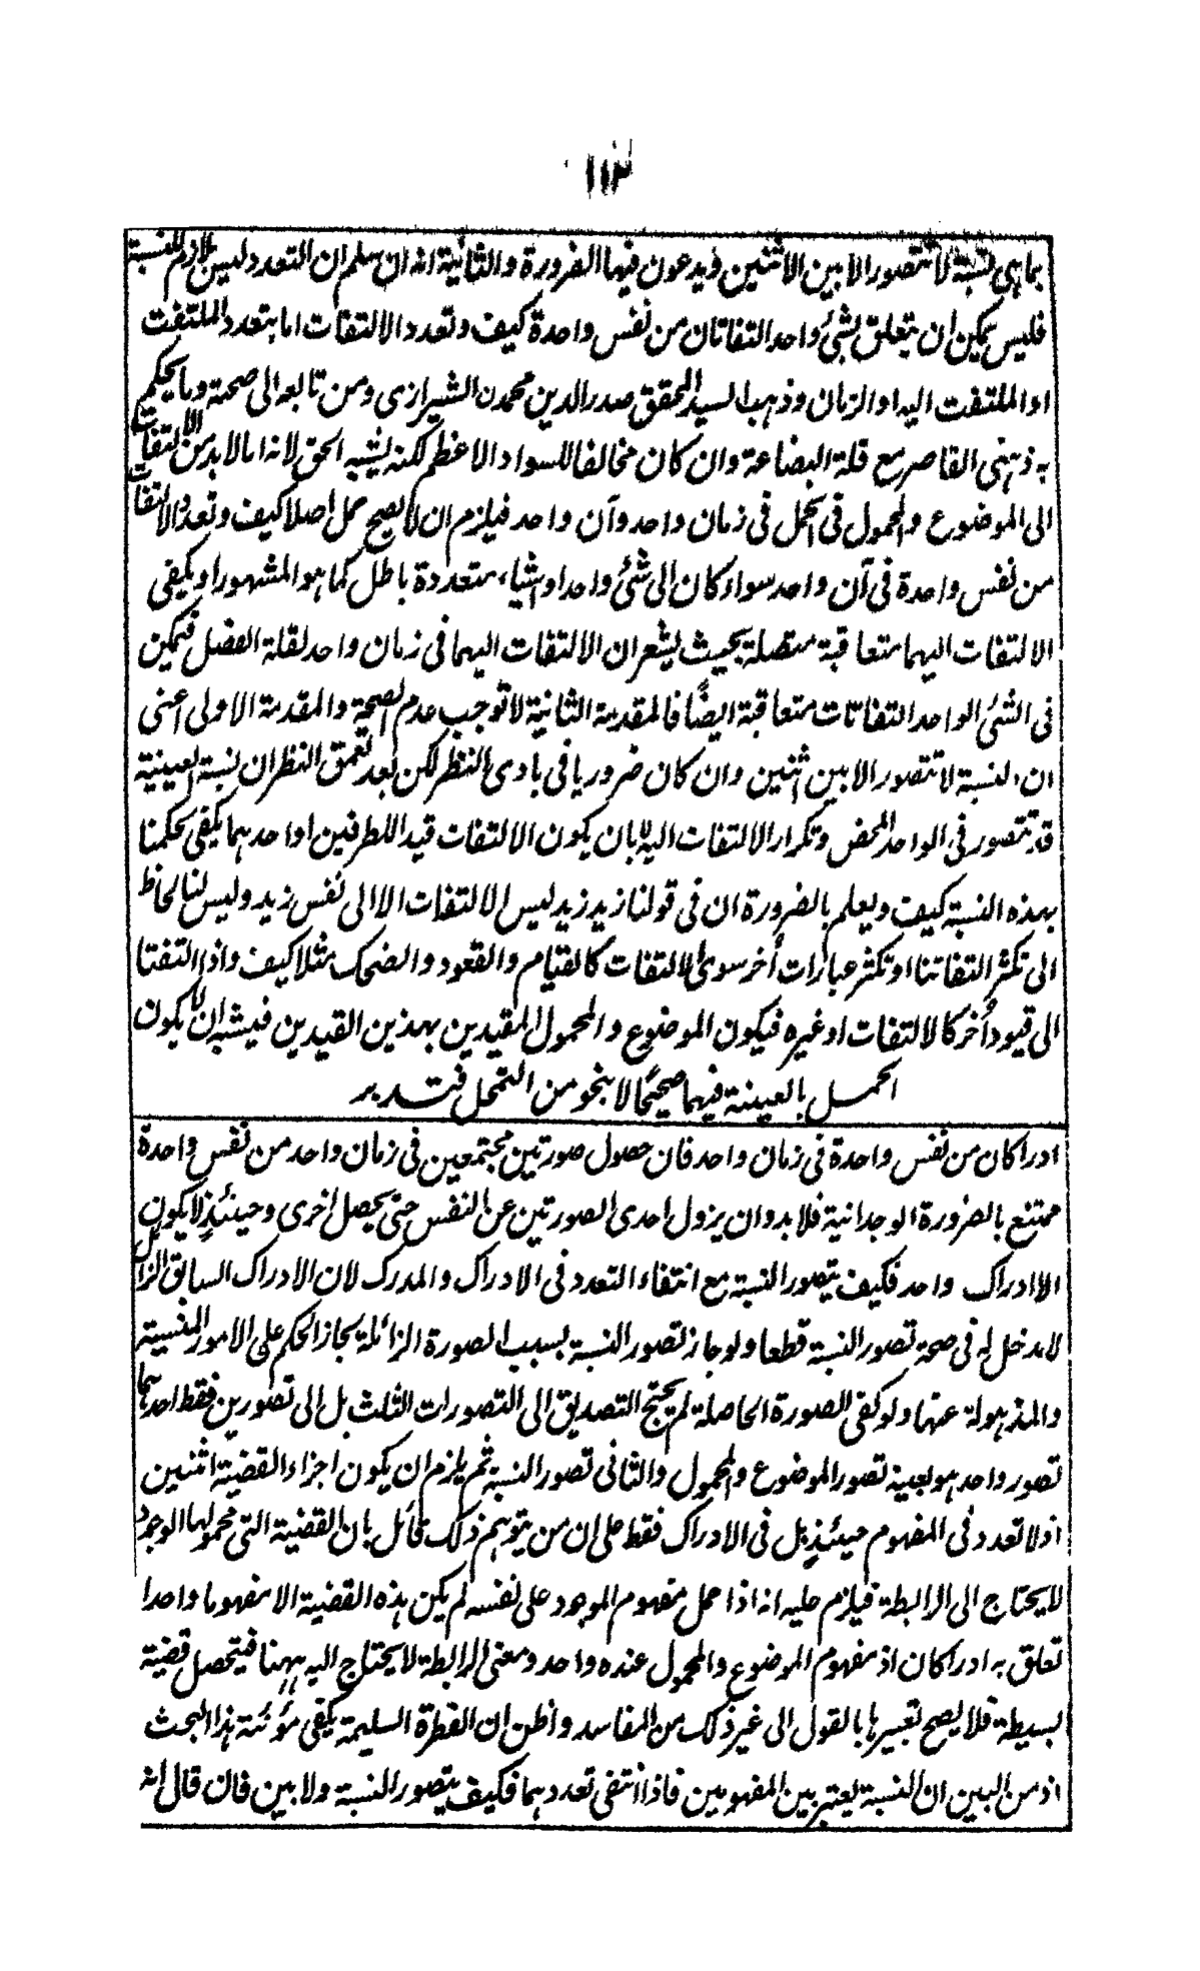 ١١٣
بما هى نسبة لا تتصور الا بين الاثنين ويدعون فيها الضرورة والثانية انه ان سلم ان التعدد ليس لازم للنسبة
فليس يمكن ان يتعلق بشئ واحد التفاتان من نفس واحدة كيف وتعدد الالتفات اما بتعدد الملتفت
او الملتفت اليه او الزمان وذهب السيد المحقق صدر الدين محمدن الشيرازى ومن تابعه الى صحته وما يحكم
به ذهنى القاصر مع قلة البضاعة وان كان مخالفا للسواد الاعظم لكنه يشبه الحق لانه اما لا بد من الالتفات
الى الموضوع والمحمول فى الحمل فى زمان واحد وآن واحد فيلزم ان لا يصح حمل اصلا كيف وتعدد الالتفات
من نفس واحدة فى آن واحد سواء كان الى شئ واحد او اشياء متعددة باطل كما هو المشهور او يكفى
الالتفات اليهما متعاقبة متصلة بحيث يشعر ان الالتفات اليهما فى زمان واحد لقلة الفضل فيمكن
فى الشئ الواحد التفاتات متعاقبة ايضًا فالمقدمة الثانية لا توجب عدم الصحة والمقدمة الاولى اعنى
ان النسبة لا تتصور الا بين اثنين وان كان ضروريا فى بادى النظر لكن بعد تعمق النظر ان نسبة العينية
قد تتصور فى الواحد المحض وتكرار الالتفات اليه لا بان يكون الالتفات قيد اللطرفين او احدهما يكفى لحكمنا
بهذه النسبة كيف ويعلم بالضرورة ان فى قولنا زيد زيد ليس الالتفات الا الى نفس زيد وليس لنا لحاظ
الى تكثر التفاتنا او تكثر عبارات أخر سوى الالتفات كالقيام والقعود والضحك مثلا كيف واذا التفتا
الى قيود أخر كالالتفات او غيره فيكون الموضوع والمحمول المقيدين بهذين القيدين فيشبه ان لا يكون
الحمل بالعينة فيهما صحيحًا الا بنحو من التمحل فتدبر
ادراكان من نفس واحدة فى زمان واحد فان حصول صورتين مجتمعين فى زمان واحد من نفس واحدة
ممتنع بالضرورة الوجدانية فلا بد وان يزول احدى الصورتين عن النفس حتى يحصل اخرى وحينئذٍ لا يكون
الا ادراك واحد فكيف يتصور النسبة مع انتفاء التعدد فى الادراك والمدرك لان الادراك السابق الزائل
لا مدخل له فى صحة تصور النسبة قطعا ولو جاز تصور النسبة بسبب الصورة الزائلة يجاز الحكم على الامور المنسية
والمذهولة عنها ولو كفى الصورة الحاصلة لم يحتج التصديق الى التصورات الثلث بل الى تصورين فقط احدهما
تصور واحد هو بعينه تصور الموضوع والمحمول والثانى تصور النسبة ثم يلزم ان يكون اجزاء القضية اثنين
اذ لا تعدد فى المفهوم حينئذٍ بل فى الادراك فقط على ان من يتوهم ذلك قائل بان القضية التى محمولها الوجود
لا يحتاج الى الرابطة فيلزم عليه انه اذا حمل مفهوم الموجود على نفسه لم يكن هذه القضية الا مفهوما واحدا
تعلق به ادراكان اذ مفهوم الموضوع والمحمول عنده واحد ومعنى الرابطة لا يحتاج اليه ههنا فيتحصل قضية
بسيطة فلا يصح تعبيرها بالقول الى غير ذلك من المفاسد واظن ان الفطرة السليمة يكفى مؤنثة هذا البحث
اذ من البين ان النسبة يعتبر بين المفهومين فاذا انتفى تعددهما فكيف يتصور النسبة ولا بين فان قال انه